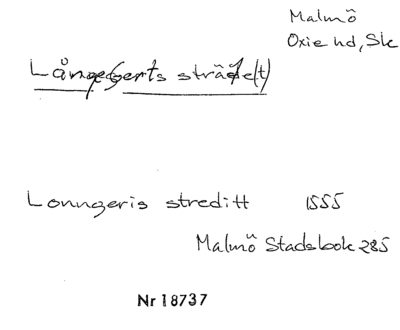 Malmö
Oxie hd, Sk
strädet)
Lonngeris streditt 1555
Malmö Stadsbok 285
Nr 18737